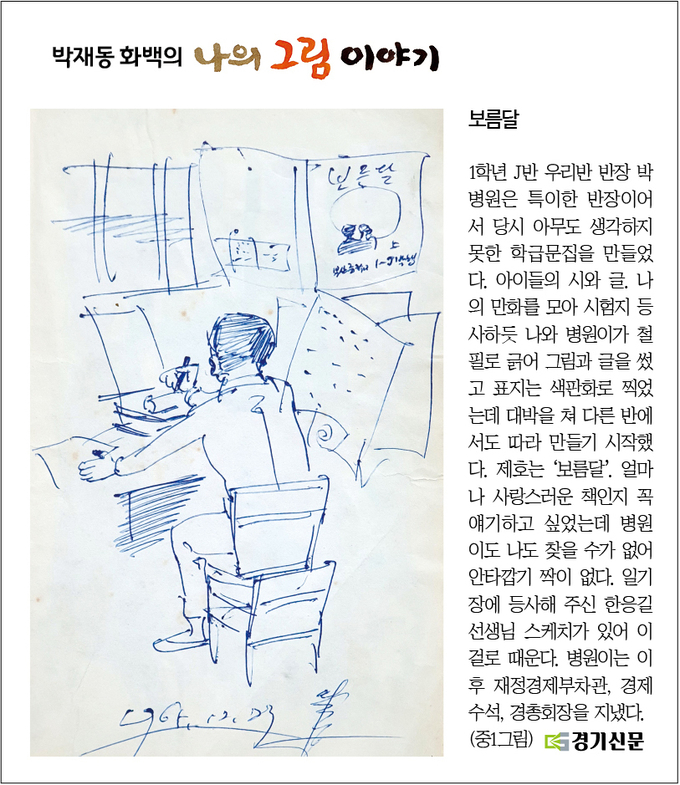 박재동 화백의 나의 그림 이야기
보름달
1학년 J반 우리반 반장 박
병원은 특이한 반장이어
서 당시 아무도 생각하지
못한 학급문집을 만들었
다. 아이들의 시와 글. 나
의 만화를 모아 시험지 등
사하듯 나와 병원이가 철
필로 긁어 그림과 글을 썼
고 표지는 색판화로 찍었
는데 대박을 쳐 다른 반에
서도 따라 만들기 시작했
다. 제호는 ‘보름달’. 얼마
나 사랑스러운 책인지 꼭
얘기하고 싶었는데 병원
이도 나도 찾을 수가 없어
안타깝기 짝이 없다. 일기
장에 등사해 주신 한응길
선생님 스케치가 있어 이
걸로 때운다. 병원이는 이
후 재정경제부차관, 경제
수석, 경총회장을 지냈다.
(중1그림) 경기신문
보름달
上